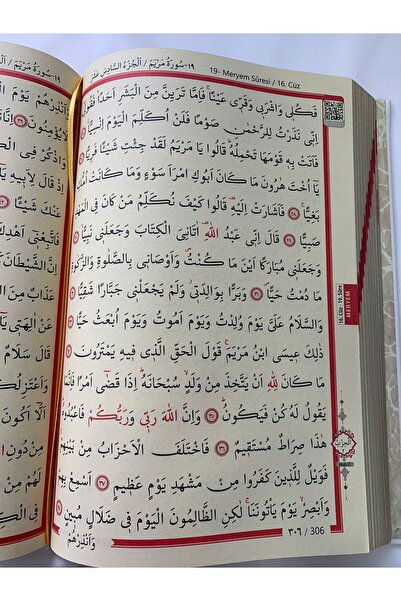 ١٩-سُورَةُ مَرْيَمَ / اَلْجُزْءُ السَّادِسَ عَشَرَ
19- Meryem Sûresi / 16. Cüz
فَكُلٖي وَاشْرَبٖي وَقَرّٖي عَيْنًاۚ فَاِمَّا تَرَيِنَّ مِنَ الْبَشَرِ اَحَدًا فَقُولٖٓي
اِنّٖي نَذَرْتُ لِلرَّحْمٰنِ صَوْمًا فَلَنْ اُكَلِّمَ الْيَوْمَ اِنْسِيًّاۚ ﴿٢٦﴾
فَاَتَتْ بِهٖ قَوْمَهَا تَحْمِلُهُۜ قَالُوا يَا مَرْيَمُ لَقَدْ جِئْتِ شَيْـًٔا فَرِيًّا ﴿٢٧﴾
يَٓا اُخْتَ هٰرُونَ مَا كَانَ اَبُوكِ امْرَاَ سَوْءٍ وَمَا كَانَتْ اُمُّكِ
بَغِيًّاۚ ﴿٢٨﴾ فَاَشَارَتْ اِلَيْهِۜ قَالُوا كَيْفَ نُكَلِّمُ مَنْ كَانَ فِي الْمَهْدِ
صَبِيًّا ﴿٢٩﴾ قَالَ اِنّٖي عَبْدُ اللّٰهِ۠ اٰتَانِيَ الْكِتَابَ وَجَعَلَنٖي نَبِيًّاۙ ﴿٣٠﴾
وَجَعَلَنٖي مُبَارَكًا اَيْنَ مَا كُنْتُۖ وَاَوْصَانٖي بِالصَّلٰوةِ وَالزَّكٰوةِ
مَا دُمْتُ حَيًّاۖ ﴿٣١﴾ وَبَرًّا بِوَالِدَتٖيۘ وَلَمْ يَجْعَلْنٖي جَبَّارًا شَقِيًّا ﴿٣٢﴾
وَالسَّلَامُ عَلَيَّ يَوْمَ وُلِدْتُ وَيَوْمَ اَمُوتُ وَيَوْمَ اُبْعَثُ حَيًّا ﴿٣٣﴾
ذٰلِكَ عٖيسَى ابْنُ مَرْيَمَۚ قَوْلَ الْحَقِّ الَّذٖي فٖيهِ يَمْتَرُونَ ﴿٣٤﴾
مَا كَانَ لِلّٰهِ اَنْ يَتَّخِذَ مِنْ وَلَدٍۙ سُبْحَانَهُۜ اِذَا قَضٰٓى اَمْرًا فَاِنَّمَا
يَقُولُ لَهُ كُنْ فَيَكُونُۜ ﴿٣٥﴾ وَاِنَّ اللّٰهَ رَبّٖي وَرَبُّكُمْ فَاعْبُدُوهُۜ
هٰذَا صِرَاطٌ مُسْتَقٖيمٌ ﴿٣٦﴾ فَاخْتَلَفَ الْاَحْزَابُ مِنْ بَيْنِهِمْۚ
فَوَيْلٌ لِلَّذٖينَ كَفَرُوا مِنْ مَشْهَدِ يَوْمٍ عَظٖيمٍ ﴿٣٧﴾ اَسْمِعْ بِهِمْ
وَاَبْصِرْۙ يَوْمَ يَأْتُونَنَا لٰكِنِ الظَّالِمُونَ الْيَوْمَ فٖي ضَلَالٍ مُبٖينٍ ﴿٣٨﴾
وَاَنْذِرْهُمْ
٣٠٦ / 306
16. Cüz 19. Sûre
MERYEM